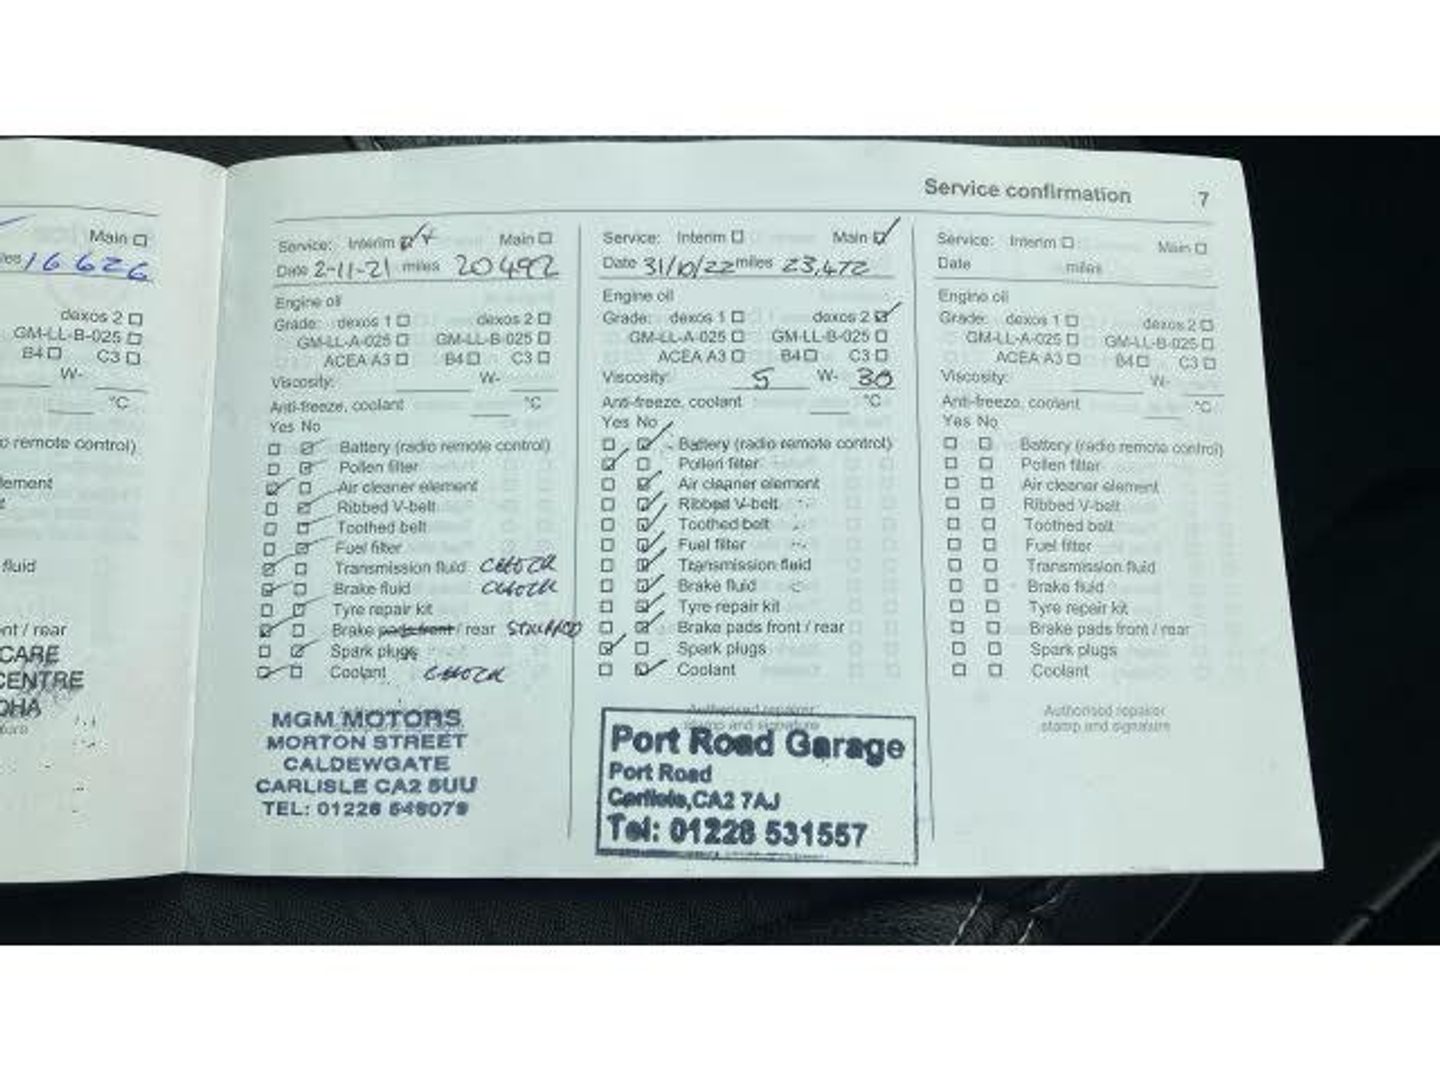 Service confirmation 7
Main
16626
dexos 2
GM-LL-B-025
B4 C3
W-
°C
remote control)
fluid
/ rear
CARE
CENTRE
Service: Interim Main
Date 2-11-21 miles 20492
Engine oil
Grade: dexos 1 dexos 2
GM-LL-A-025 GM-LL-B-025
ACEA A3 B4 C3
Viscosity: W-
Anti-freeze, coolant °C
Yes No
Battery (radio remote control)
Pollen filter
Air cleaner element
Ribbed V-belt
Toothed belt
Fuel filter
Transmission fluid CHECK
Brake fluid CHECK
Tyre repair kit
Brake pads front / rear STRIPPED
Spark plugs
Coolant CHECK
MGM MOTORS
MORTON STREET
CALDEWGATE
CARLISLE CA2 5UU
TEL: 01228
Service: Interim Main
Date 31/10/22 miles 23,472
Engine oil
Grade: dexos 1 dexos 2
GM-LL-A-025 GM-LL-B-025
ACEA A3 B4 C3
Viscosity: 5 W- 30
Anti-freeze, coolant °C
Yes No
Battery (radio remote control)
Pollen filter
Air cleaner element
Ribbed V-belt
Toothed belt
Fuel filter
Transmission fluid
Brake fluid
Tyre repair kit
Brake pads front / rear
Spark plugs
Coolant
Authorised repairer
stamp and signature
Port Road Garage
Port Road
Carlisle, CA2 7AJ
Tel: 01228 531557
Service: Interim Main
Date miles
Engine oil
Grade: dexos 1 dexos 2
GM-LL-A-025 GM-LL-B-025
ACEA A3 B4 C3
Viscosity: W-
Anti-freeze, coolant °C
Yes No
Battery (radio remote control)
Pollen filter
Air cleaner element
Ribbed V-belt
Toothed belt
Fuel filter
Transmission fluid
Brake fluid
Tyre repair kit
Brake pads front / rear
Spark plugs
Coolant
Authorised repairer
stamp and signature